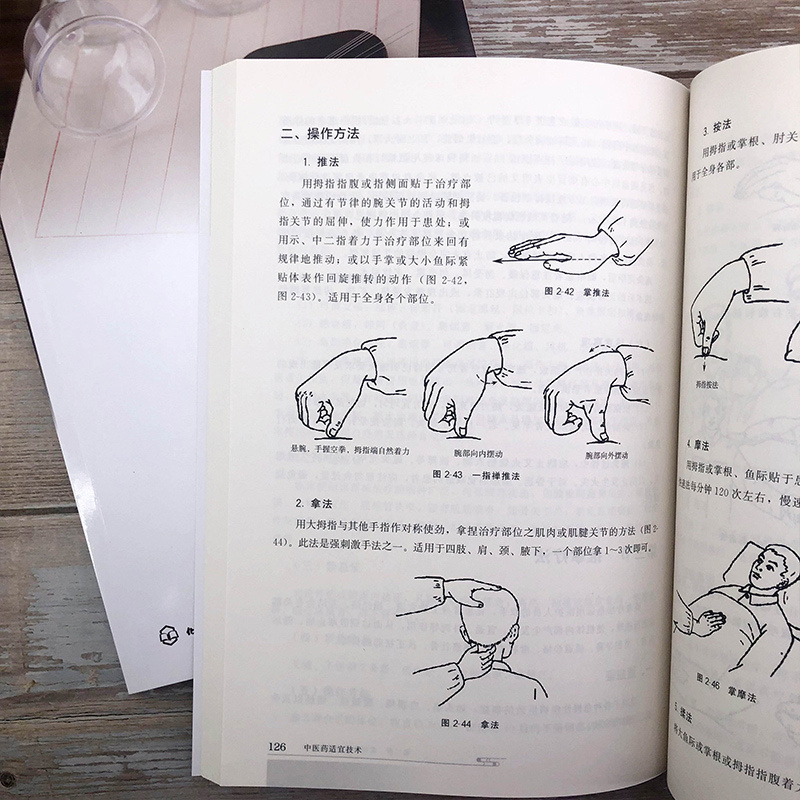 二、操作方法
1. 推法
用拇指指腹或指侧面贴于治疗部
位，通过有节律的腕关节的活动和拇
指关节的屈伸，使力作用于患处；或
用示、中二指着力于治疗部位来回有
规律地推动；或以手掌或大小鱼际紧
贴体表作回旋推转的动作（图 2-42、
图 2-43）。适用于全身各个部位。
图 2-42 掌推法
悬腕、手握空拳、拇指端自然着力
腕部向内摆动
腕部向外摆动
图 2-43 一指禅推法
2. 拿法
用大拇指与其他手指作对称使劲，拿捏治疗部位之肌肉或肌腱关节的方法（图 2-
44）。此法是强刺激手法之一。适用于四肢、肩、颈、腋下，一个部位拿 1～3 次即可。
图 2-44 拿法
126 中医药适宜技术
3. 按法
用拇指或掌根、肘关
用于全身各部。
拇指按法
4. 摩法
用拇指或掌根、鱼际贴于患
法每分钟 120 次左右，慢速
图 2-46 掌摩法
5. 揉法
将大鱼际或掌根或拇指指腹着